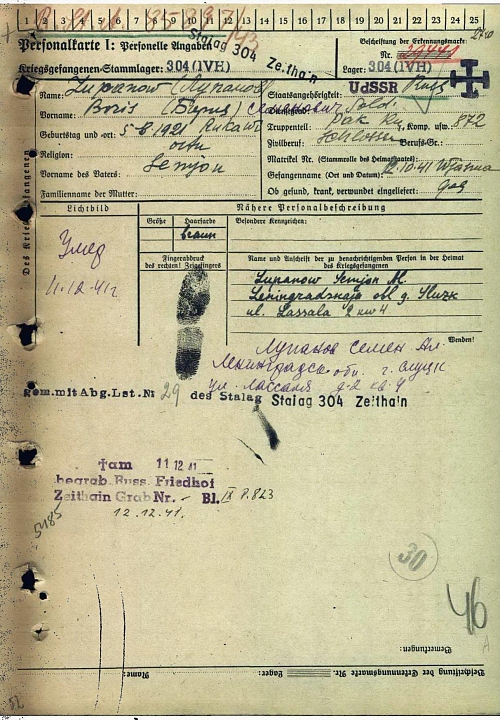 1 2 3 4 5 6 7 8 9 10 11 12 13 14 15 16 17 18 19 20 21 22 23 24 25
Personalkarte I: Personelle Angaben
Stalag 304 Zeithain
Beschriftung der Erkennungsmarke:
Nr. 29441
Kriegsgefangenen-Stammlager: 304 (IVH)
Lager: 304 (IVH)
Des Kriegsgefangenen
Name: Lupanow (Лупанов)
Staatsangehörigkeit: UdSSR Russ
Vorname: Boris (Борис) Семенович
Dienstgrad: Sold.
Geburtstag und -ort: 5.8.1921
Truppenteil: Komp. usw. 872
Religion: orth
Zivilberuf: Schlosser Berufs-Gr.:
Matrikel Nr. (Stammrolle des Heimatstaates):
Vorname des Vaters: Semjon
Gefangennahme (Ort und Datum): 12.10.41 Wjasma
Familienname der Mutter:
Ob gesund, krank, verwundet eingeliefert: ges
Lichtbild
Nähere Personalbeschreibung
Größe
Haarfarbe
Besondere Kennzeichen:
braun
Умер
11.12.41г
Fingerabdruck
des rechten! Zeigefingers
Name und Anschrift der zu benachrichtigenden Person in der Heimat
des Kriegsgefangenen
Lupanow Semjon M.
Leningradskaja M g. Sluzk
ul. Lassala 2 kw 4
Wenden!
Лупанов Семен
Ленинградск. обл. г. Слуцк
ул. Лассаля д-2 кв 4
kom.mit Abg.Lst.Nr 29 des Stalag Stalag 304 Zeithain
†am 11 12 41
begrab. Russ. Friedhof
Zeithain Grab Nr. - Bl. IX P.823
12.12.41.
5185
30
46
Bemerkungen:
Beschriftung der Erkennungsmarke Nr. Lager: Name: